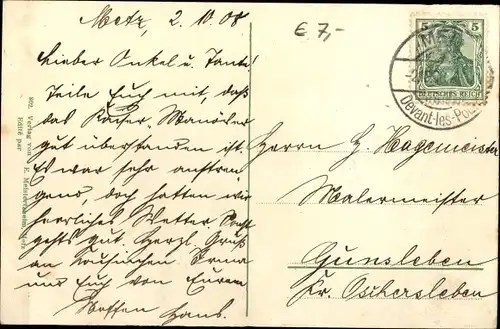 Metz, 2.10.08
€ 7,-
Lieber Onkel u. Tante!
Teile Euch mit, daß
das Kaiser-Manöver
gut überstanden ist.
Es war sehr anstren
gend, doch hatten wir
herrliches Wetter. Sonst
gehts gut. Herzl. Gruß
an Cousinchen Irma
und Euch von Eurem
Neffen Hans.
5
DEUTSCHES REICH
METZ
Devant-les-Po
Herrn H. Hagemeister
Malermeister
Gunsleben
Kr. Oschersleben
Verlag von E. Metz
Edité par